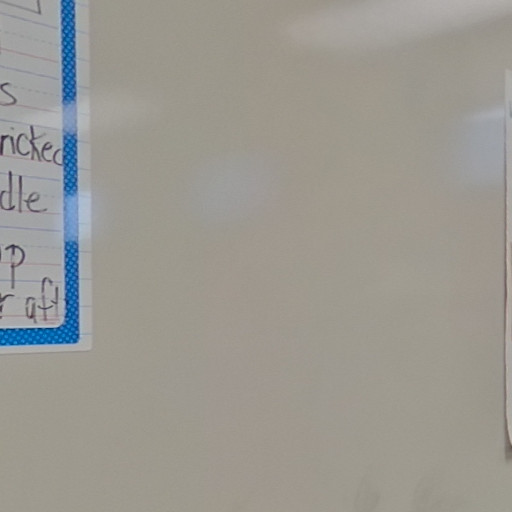 s
ricked
dle
p
r aft